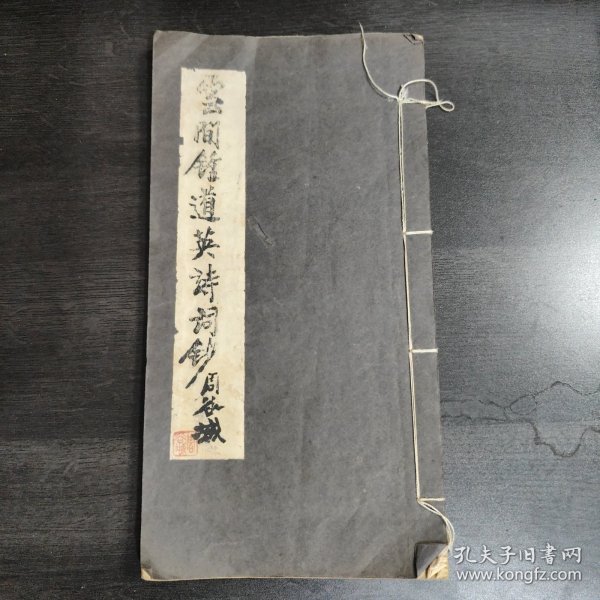 雲間鍾道英詩詞鈔
周谷城
孔夫子旧書网
www.kongfz.com